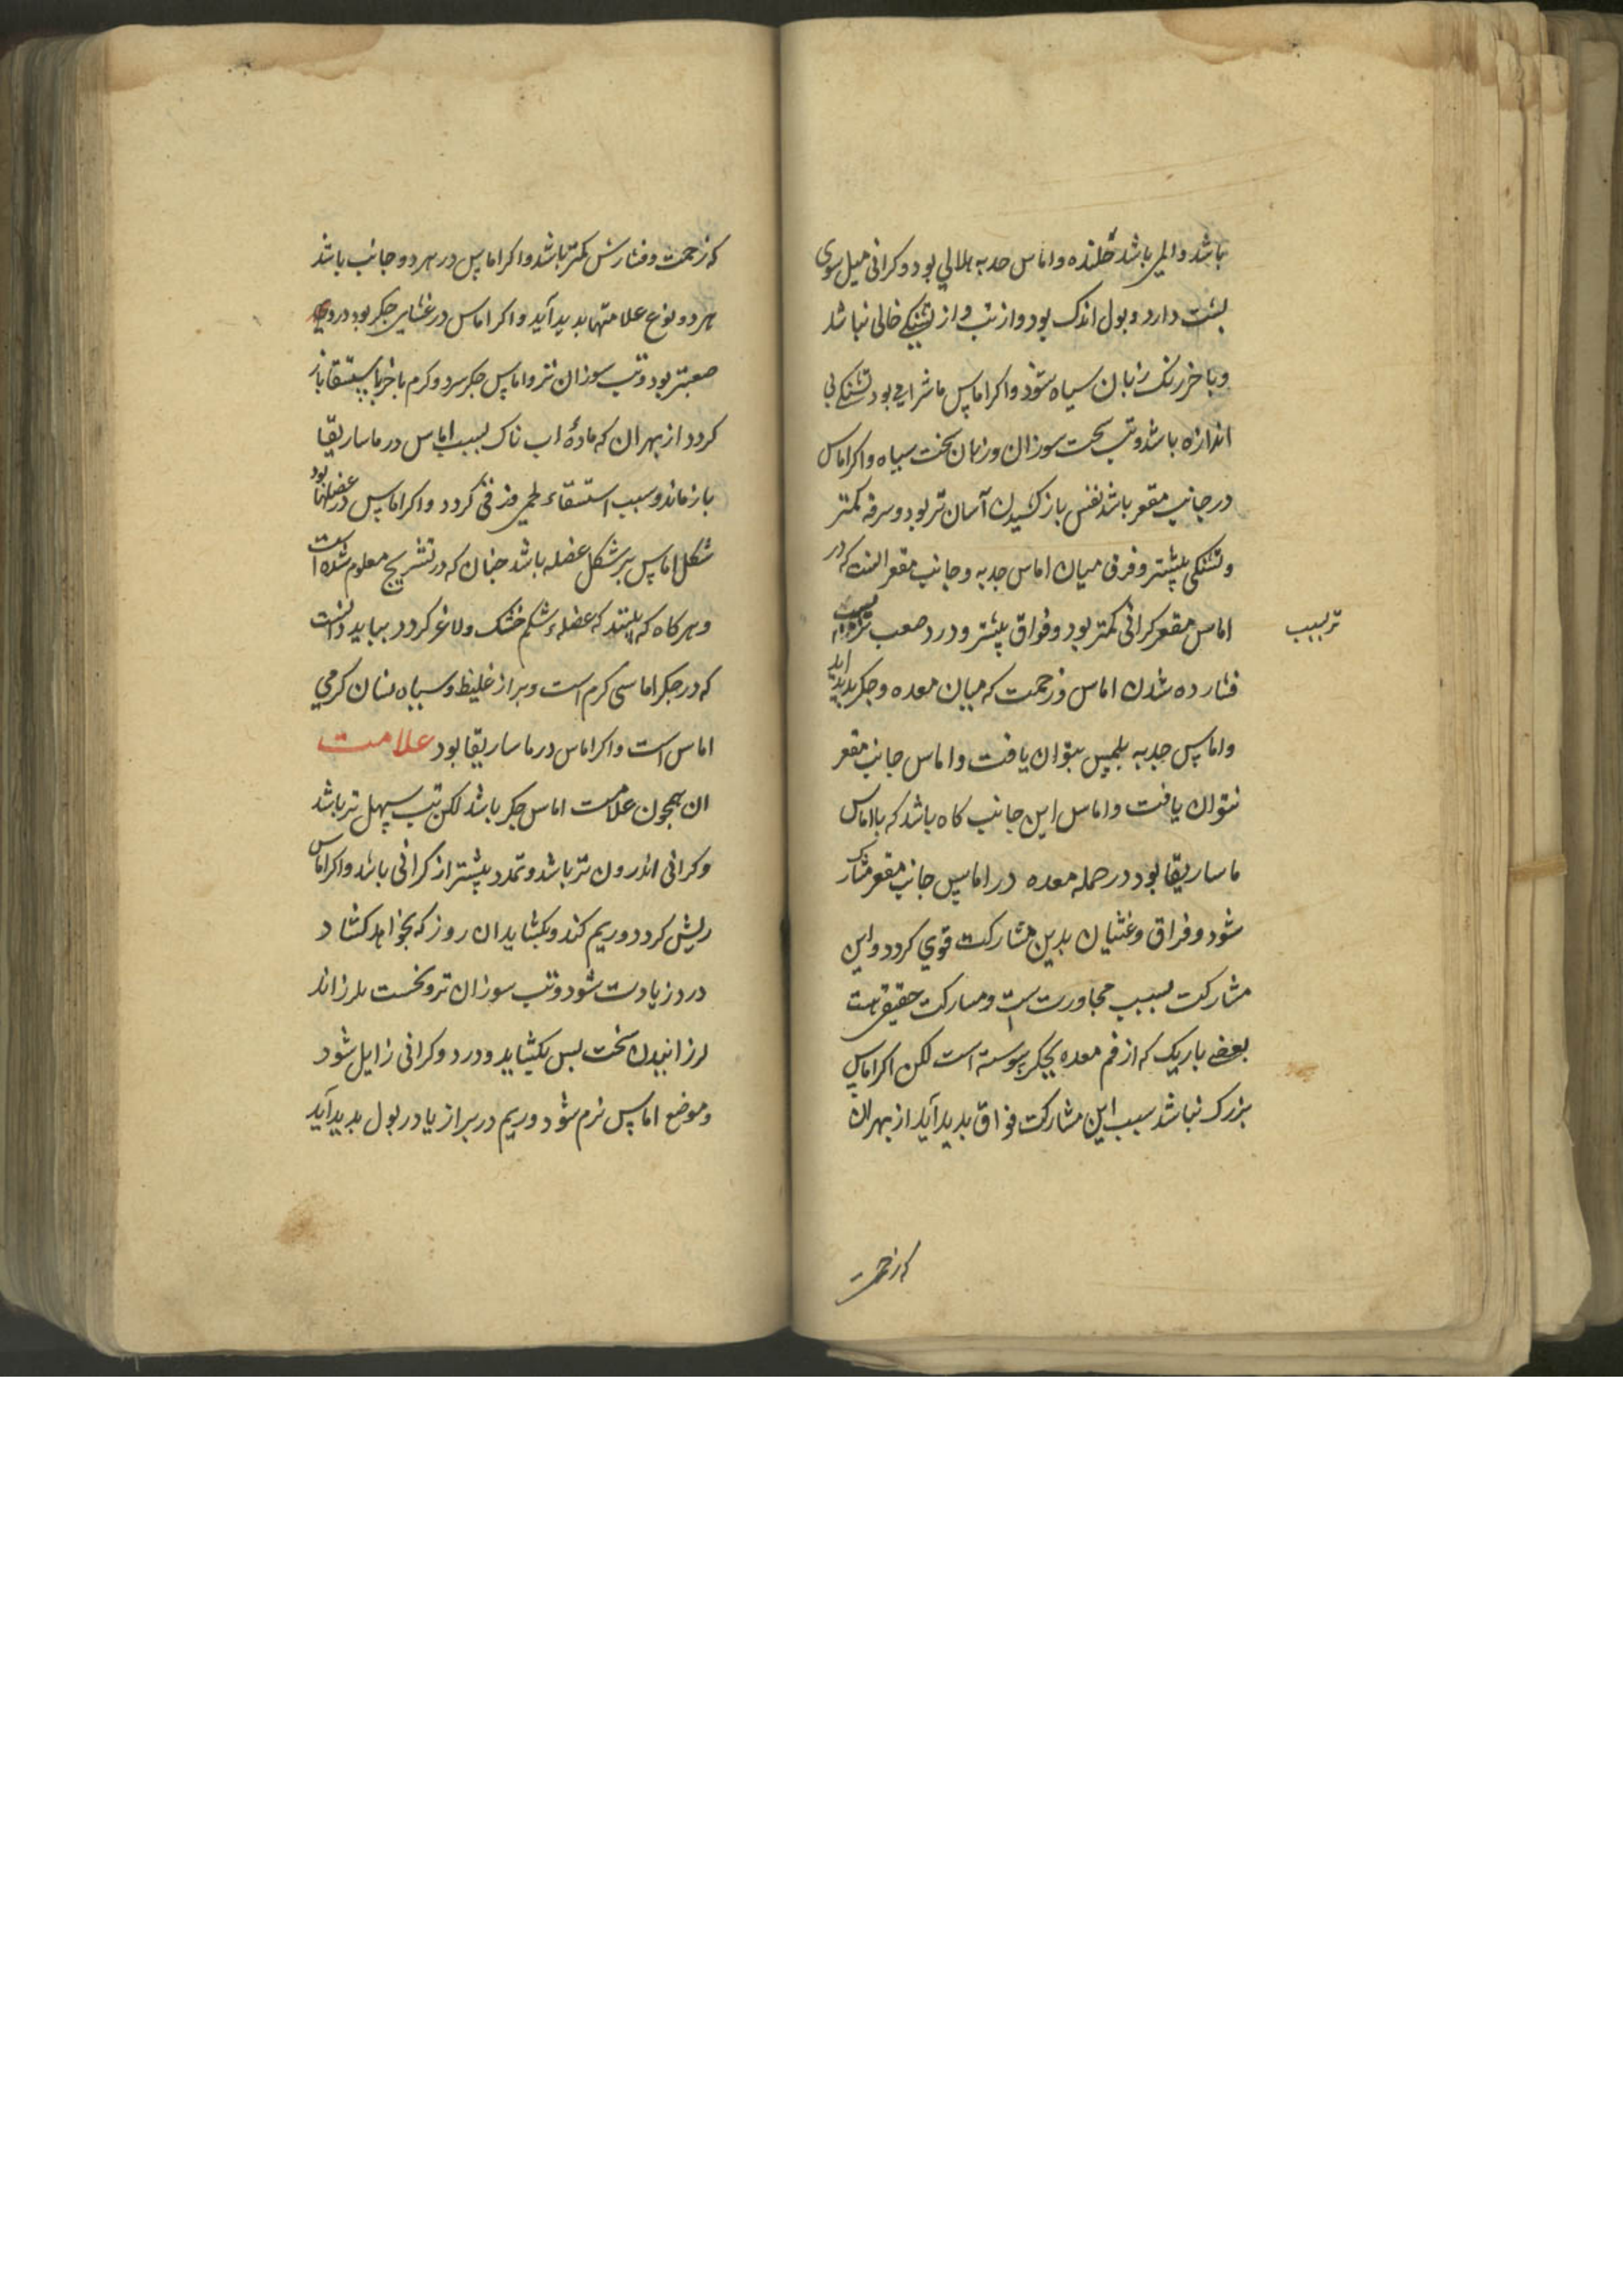 باشد والمی باشد خلنده واماس حدبه هلالی بود وکرانی میل سوی
پشت دارد وبول اندک بود واز تب واز تشنگی خالی نباشد
وباخر رنک زبان سیاه شود واکر اماس ماشرایی بود تشنگی بی
اندازه باشد وتب سخت سوزان وزبان سخت سیاه واکر اماس
در جانب مقعر باشد نفس باز کشیدن آسان تر بود وسرفه کمتر
وتشنکی بیشتر وفرق میان اماس حدبه وجانب مقعر انست که در
اماس مقعر کرانی کمتر بود وفواق بیشتر ودرد صعب
تر بسبب
فشارده شدن اماس وزحمت که میان معده وجکر بدید اید
واماس حدبه بلمس بتوان یافت واماس جانب مقعر
نتوان یافت واماس این جانب کاه باشد که بااماس
ماساریقا بود در جمله معده در اماس جانب مقعر مشارک
شود وفراق وغثیان بدین مشارکت قوی کردد واین
مشارکت بسبب مجاورت است ومشارکت حقیقی هست
بعضی باریک که از فم معده بجکر پیوسته است لکن اکر اماس
بزرک نباشد سبب این مشارکت فواق بدید آید از بهر ان
که زحمت
که زحمت وفشارش کمتر باشد واکر اماس در هر دو جانب باشد
هر دو نوع علامتها بدید آید واکر اماس در غشاء این جکر بود درد
صعبتر بود وتب سوزان تر واماس جکر سرد وکرم باخر باستسقا باز
کردد از بهر ان که مادۀ اب ناک بسبب اماس در ماساریقا
باز ماند وسبب استسقاء لحمی وزقی کردد واکر اماس در عضلها بود
شکل اماس بر شکل عضله باشد جنان که در تشریح معلوم شده است
وهرکاه که بینند که عضلهء شکم خشک ولاغر کردد بباید دانست
که در جکر اماسی کرم است وبراز غلیظ وسیاه نشان کرمی
اماس است واکر اماس در ماساریقا بود علامت
ان همجون علامت اماس جکر باشد لکن تب سهل تر باشد
وکرانی اندرون تر باشد وتمدد بیشتر از کرانی باشد واکر اماس
ریش کردد وریم کند وبکشاید ان روز که بخواهد کشاد
درد زیادت شود وتب سوزان تر ونخست بلرزاند
لرزانیدن سخت بس بکشاید ودرد وکرانی زایل شود
وموضع اماس نرم شود وریم در براز یا در بول بدید آید